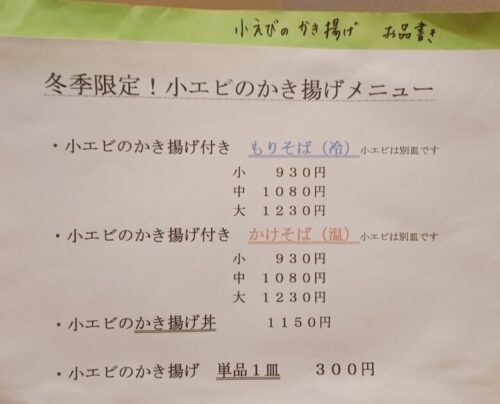 小えびの かき揚げ お品書き
冬季限定！小エビのかき揚げメニュー
・小エビのかき揚げ付き もりそば（冷） 小エビは別皿です
小 ９３０円
中 １０８０円
大 １２３０円
・小エビのかき揚げ付き かけそば（温） 小エビは別皿です
小 ９３０円
中 １０８０円
大 １２３０円
・小エビのかき揚げ丼 １１５０円
・小エビのかき揚げ 単品１皿 ３００円